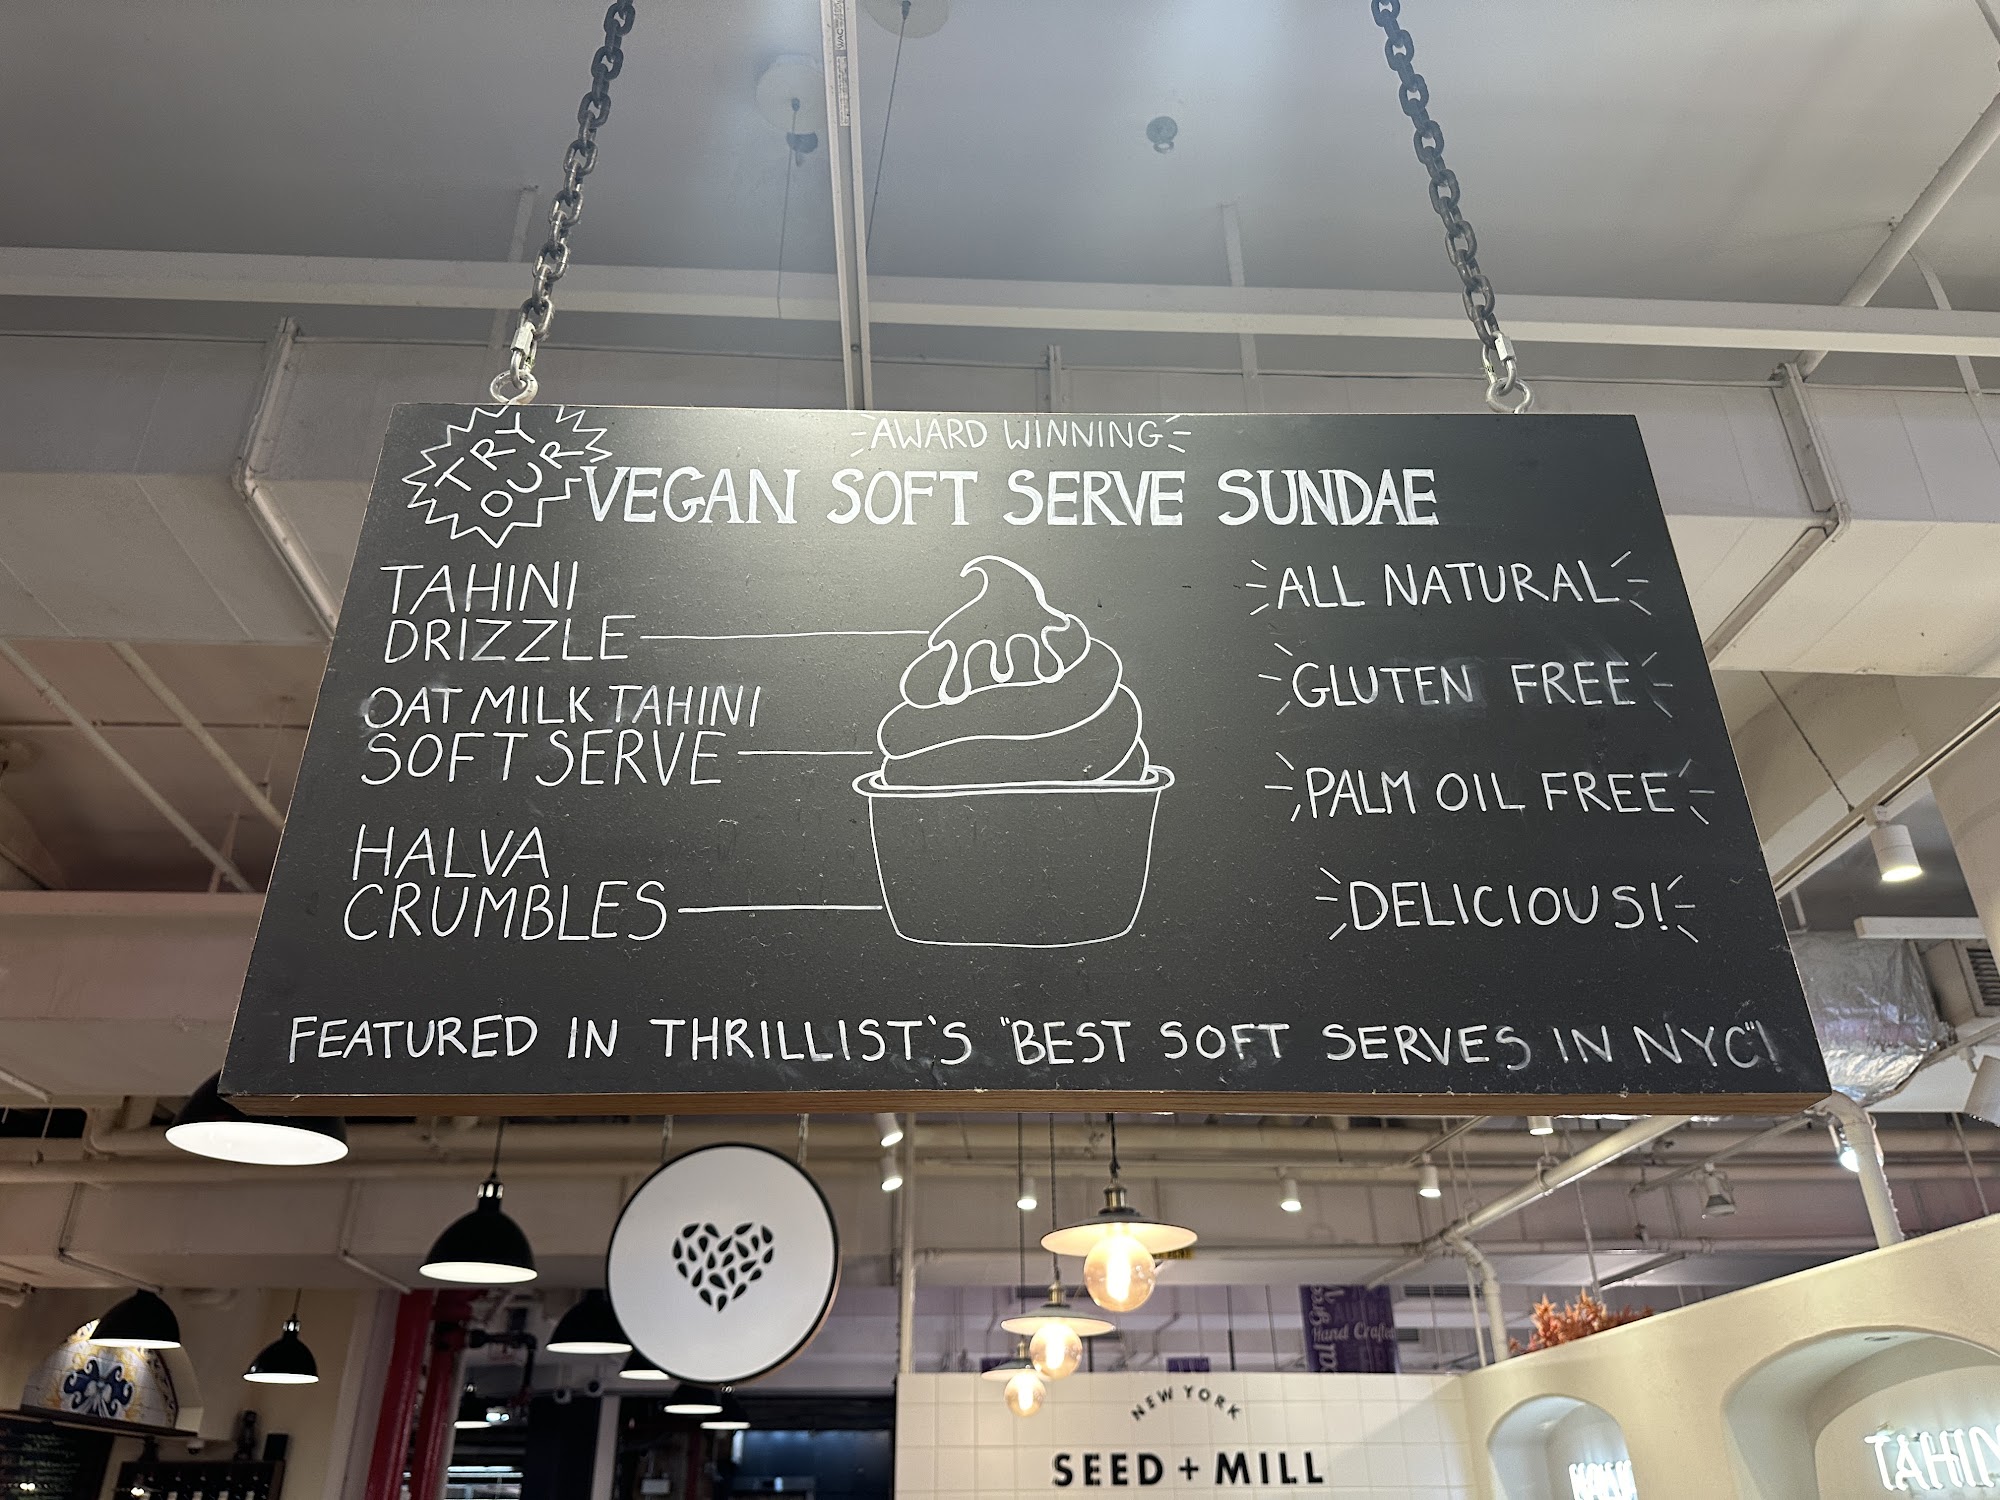 TRY
OUR
AWARD WINNING
VEGAN SOFT SERVE SUNDAE
TAHINI
DRIZZLE
OAT MILK TAHINI
SOFT SERVE
HALVA
CRUMBLES
ALL NATURAL
GLUTEN FREE
PALM OIL FREE
DELICIOUS!
FEATURED IN THRILLIST'S "BEST SOFT SERVES IN NYC"!
Hand Crafted
NEW YORK
SEED + MILL
TAHIN